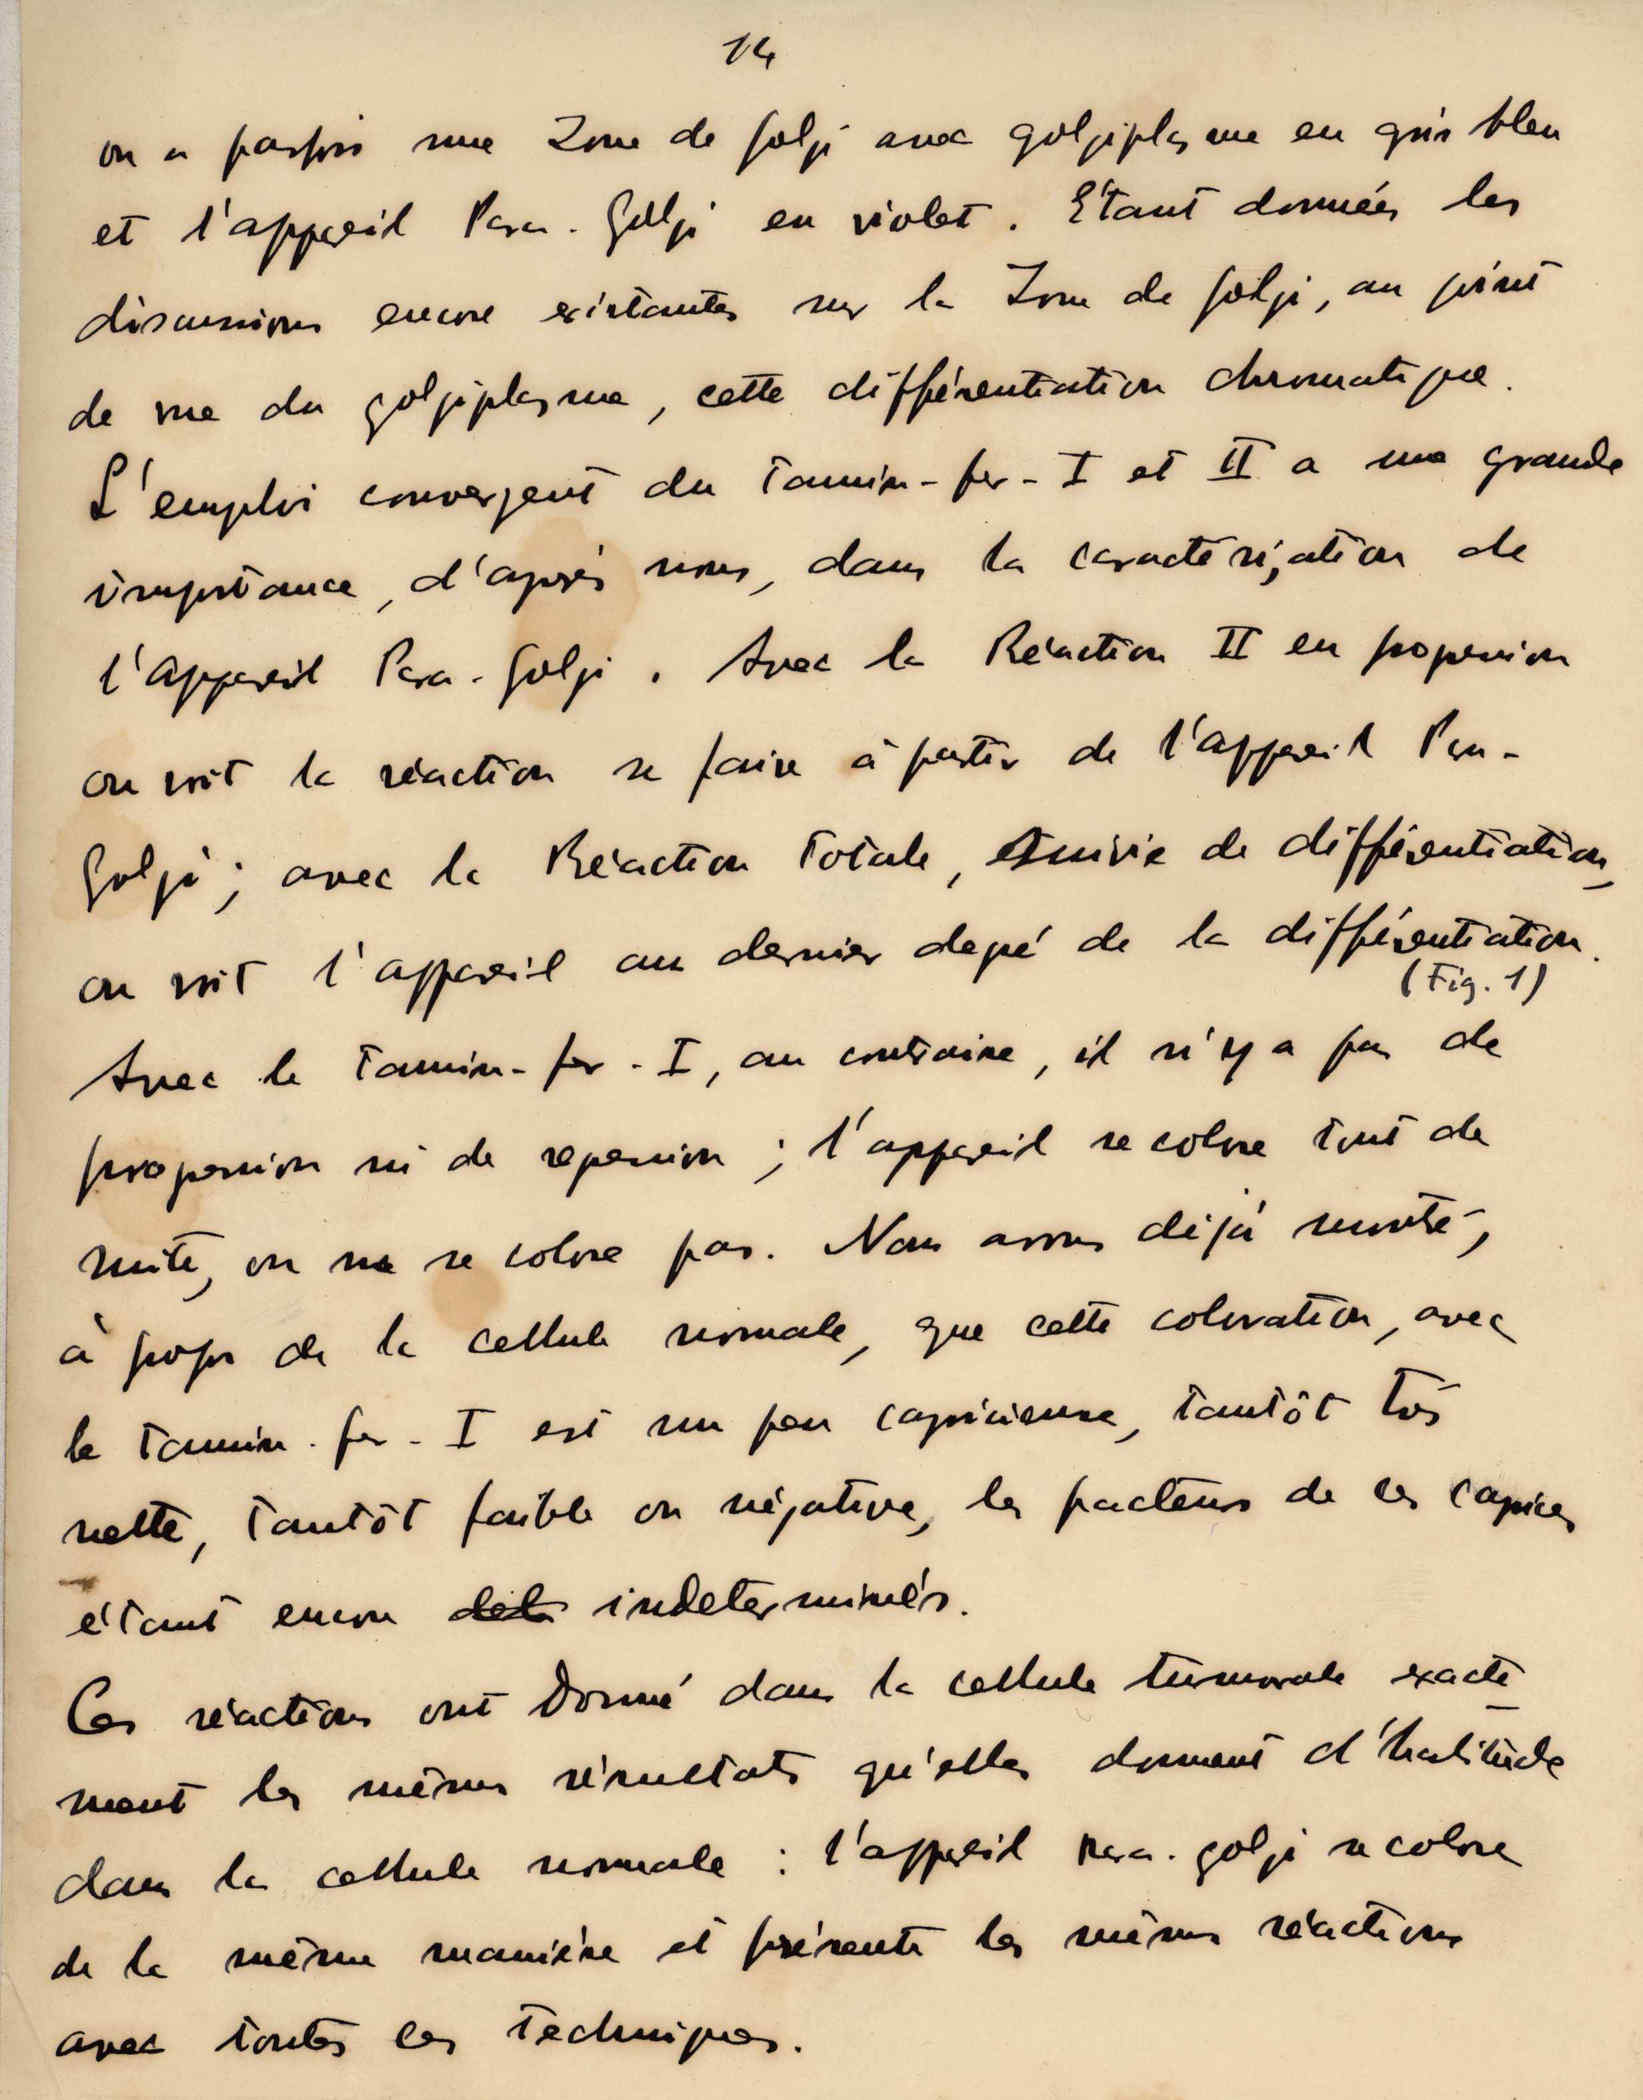 14
on a parfois une Zone de Golgi avec golgiplasme en gris bleu
et l'appareil Para-Golgi en violet. Etant données les
discussions encore existantes sur la Zone de Golgi, au point
de vue du golgiplasme, cette différentiation chromatique.
L'emploi convergent du Tannin-fer-I et II a une grande
importance, d'après nous, dans la caractérisation de
l'appareil Para-Golgi. Avec la Réaction II en progression
on voit la réaction se faire à partir de l'appareil Para-
Golgi; avec la Réaction Totale, suivie de différentiation,
on voit l'appareil au dernier degré de la différentiation.
(Fig. 1)
Avec le Tannin-fer-I, au contraire, il n'y a pas de
progression ni de regression; l'appareil se colore tout de
suite, ou ne se colore pas. Nous avons déjà montré,
à propos de la cellule normale, que cette coloration, avec
le Tannin-fer-I est un peu capricieuse, tantôt très
nette, tantôt faible ou négative, les facteurs de ces caprices
étant encore indeterminés.
Ces réactions ont donné dans la cellule tumorale exacte-
ment les mêmes résultats qu'elles donnent d'habitude
dans la cellule normale: l'appareil Para-golgi se colore
de la même manière et présente les mêmes réactions
avec toutes ces techniques.